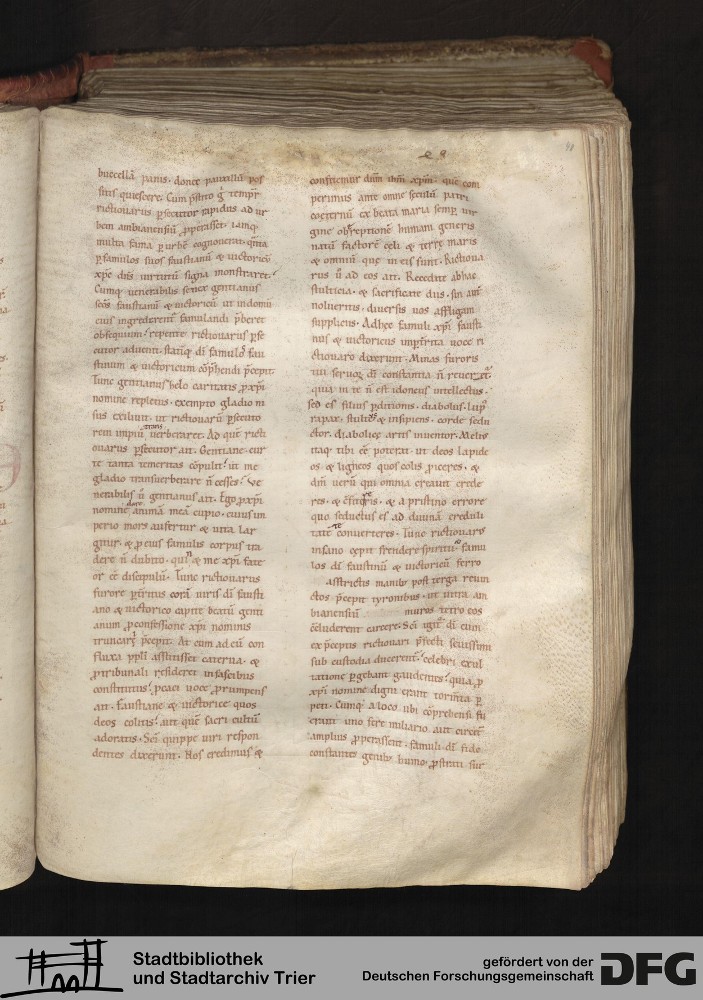 e 8
91
buccellã panis · donec pauxillũ pos
sitis quiescere. Cum p̃fato g̃ temp̃r
rictiouarus p̃secutor rapidus ad ur
bem ambianensiũ ꝓperasset · iamq;
multa fama ꝑ urbẽ cognouerat · quia
ꝑ famulos suos faustianũ & uictoricũ
xp̃c dñs uirtutũ signa monstraret.
Cumq; uenerabilis senex gentianus
sc̃os faustianũ & uictoricũ ut in domũ
eius ingrederent̃ famulandi p̃beret
obsequium · repente rictiouarus p̃se
cutor aduenit. statĩq; dĩ famulos fau
stinum & uictoricum cõp̃hendi p̃cepit.
Tunc gentianus zelo caritatis ꝓ xp̃i
nomine repletus · exempto gladio in
sus exiluit · ut rictiouarũ p̃secuto
rem impiũ trans uerberaret. Ad quẽ ricti
ouarus p̃secutor ait. Gentiane · cur
te tanta temeritas cõpulit · ut me
gladio transuerberare ñ cesses? Ve
nerabilis ũ gentianus ait. Ego ꝓ xp̃i
nomine dare animã meã cupio · cuius im
perio mors aufertur & uita lar
gitur · & ꝓ eius famulis corpus tra
dere ñ dubito · quin & me xp̃i fate
or ẽe discipulũ. Tunc rictiouarus
furore ꝑcitus corã uiris dĩ fausti
ano & uictorico capite beatũ genti
anum ꝓ confessione xp̃i nominis
truncari p̃cepit. At cum ad eũ con
fluxa pp̃li astitisset caterua · &
ꝓ tribunali resideret in fascibus
constitutus · ꝓcaci uoce ꝓrumpens
ait. Faustiane & uictorice quos
deos colitis · aut quẽ sacri cultũ
adoratis. Sc̃i quippe uiri respon
dentes dixerunt. Nos credimus &
confitemur dũm ihm̃ xp̃m · quẽ com
perimus ante omne seculũ patri
coeternũ ex beata maria semp̃ uir
gine ob redemptionẽ humani generis
natũ factorẽ celi & terrę maris
& omniũ quę in eis sunt. Rictioua
rus ũ ad eos ait. Recedite ab hac
stulticia · & sacrificate diis · sin aut̃
nolueritis · diuersis uos affligam
suppliciis. Ad hęc famuli xp̃i fausti
nus & uictoricus imp̃trita uoce ri
ctiouaro dixerunt. Minas furoris
tui seruoꝝ dĩ constantia ñ reueretur ·
quia in te ñ est idoneus intellectus ·
sed es filius ꝑditionis · diabolus · lupus
rapax · stultus & insipiens · corde sedu
ctor · diabolicę artis inuentor. Melius
itaq; tibi ẽe poterat · ut deos lapide
os & ligneos quos colis ꝓiceres · &
dm̃ uerũ qui omnia creauit crede
res · & cõfitereris · & a pristino errore
quo seductus es ad diuinã creduli
tatẽ te conuerteres. Tunc rictiouarus
insano cepit stridere spiritu · & famu
los dĩ faustinũ & uictoricũ ferro
astrictis manib; post terga reuin
ctos p̃cepit tyronibus · ut intra am
bianensiũ muros tetro eos
c̃cluderent carcere. Sc̃i igit̃ dĩ cum
ex p̃ceptis rictiouari p̃fecti sęuissimi
sub custodia ducerent̃ · celebri exul
tatione ꝑgebant gaudentes · quia ꝓ
xp̃i nomine digni erant torm̃ta ꝑ
peti. Cumq; a loco ubi cõprehensi fu
erant uno fere miliario aut circit̃
amplius ꝓperassent · famuli dĩ fide
constantes genib; humo ꝓstrati sur
Stadtbibliothek
und Stadtarchiv Trier
gefördert von der
Deutschen Forschungsgemeinschaft
DFG